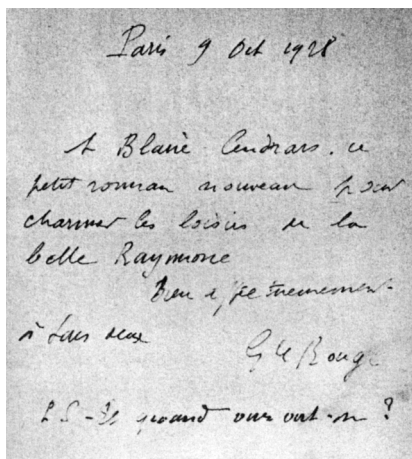 Paris 9 Oct 1928
A Blaise Cendrars. ce
petit roman nouveau pour
charmer les loisirs de la
belle Raymone
Bien affectueusement
à tous deux
G Le Rouge
P S - Et quand vous voit-on ?